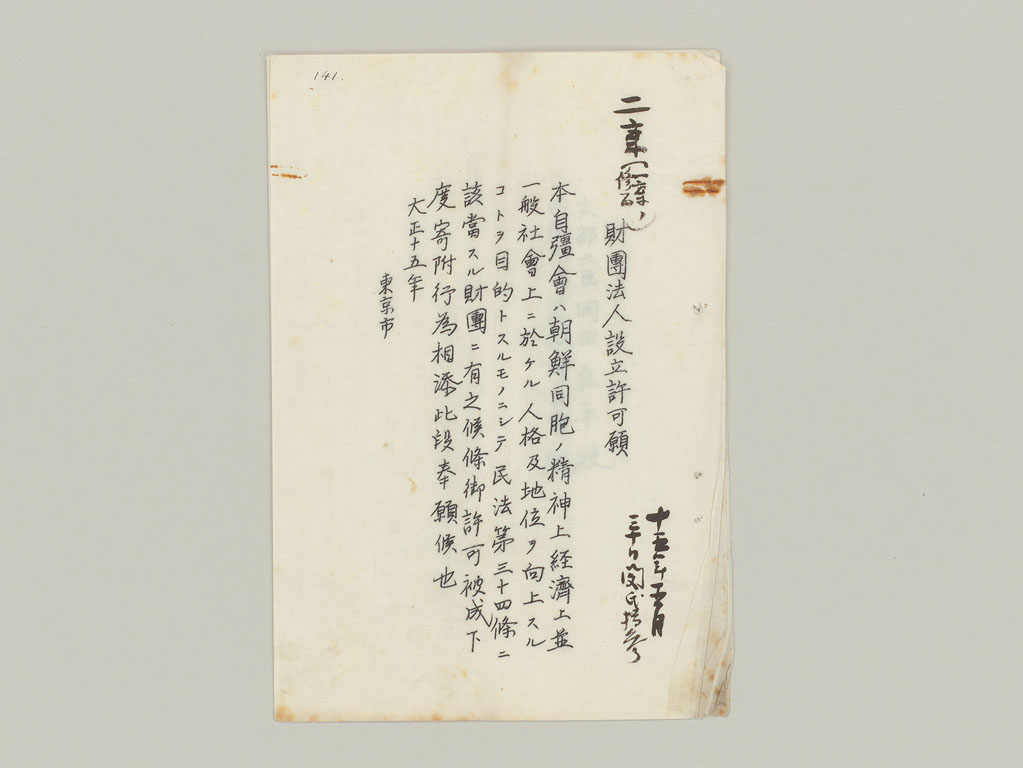 141.
二
財團法人設立許可願
本自彊會ハ朝鮮同胞ノ精神上経濟上並
一般社會上ニ於ケル人格及地位ヲ向上スル
コトヲ目的トスルモノニシテ民法第三十四條ニ
該當スル財團ニ有之候條御許可被成下
度寄附行為相添此段奉願候也
大正十五年
東京市
十五年五月
三十日閔氏持参